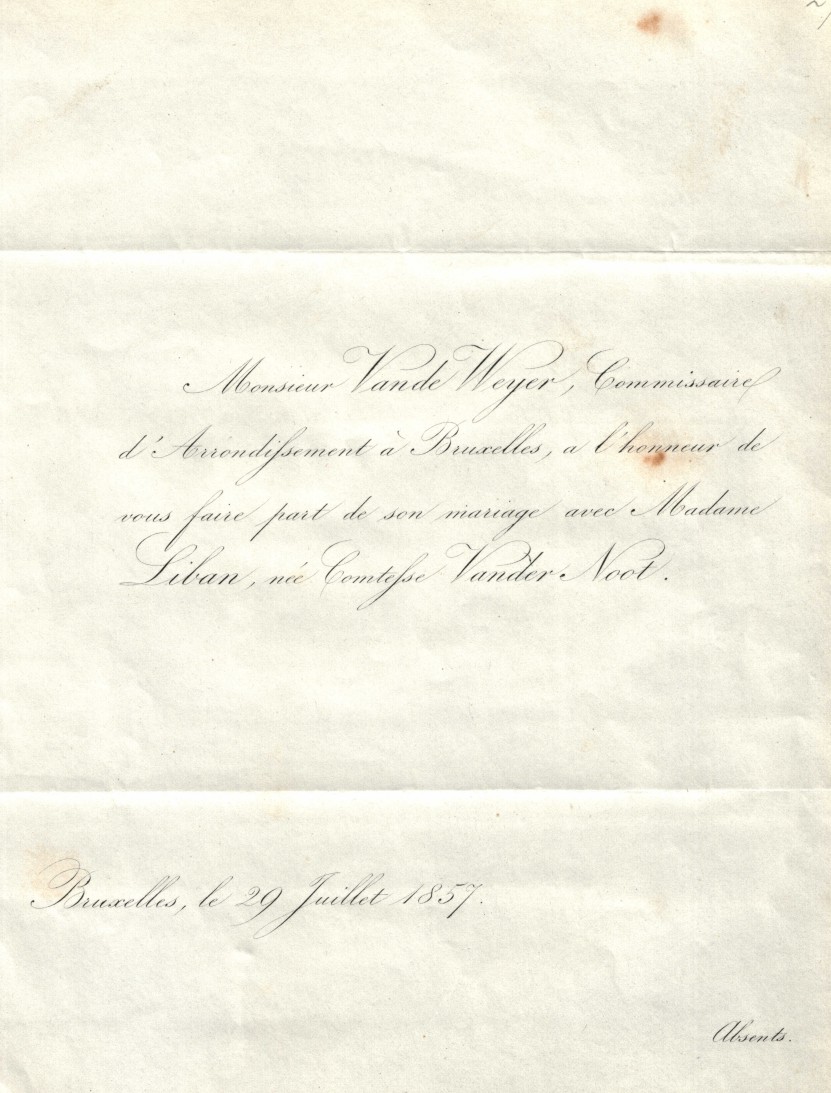 Monsieur Vande Weyer, Commissaire
d'Arrondissement à Bruxelles, a l'honneur de
vous faire part de son mariage avec Madame
Liban, née Comtesse Vander Noot.
Bruxelles, le 29 Juillet 1857.
Absents.